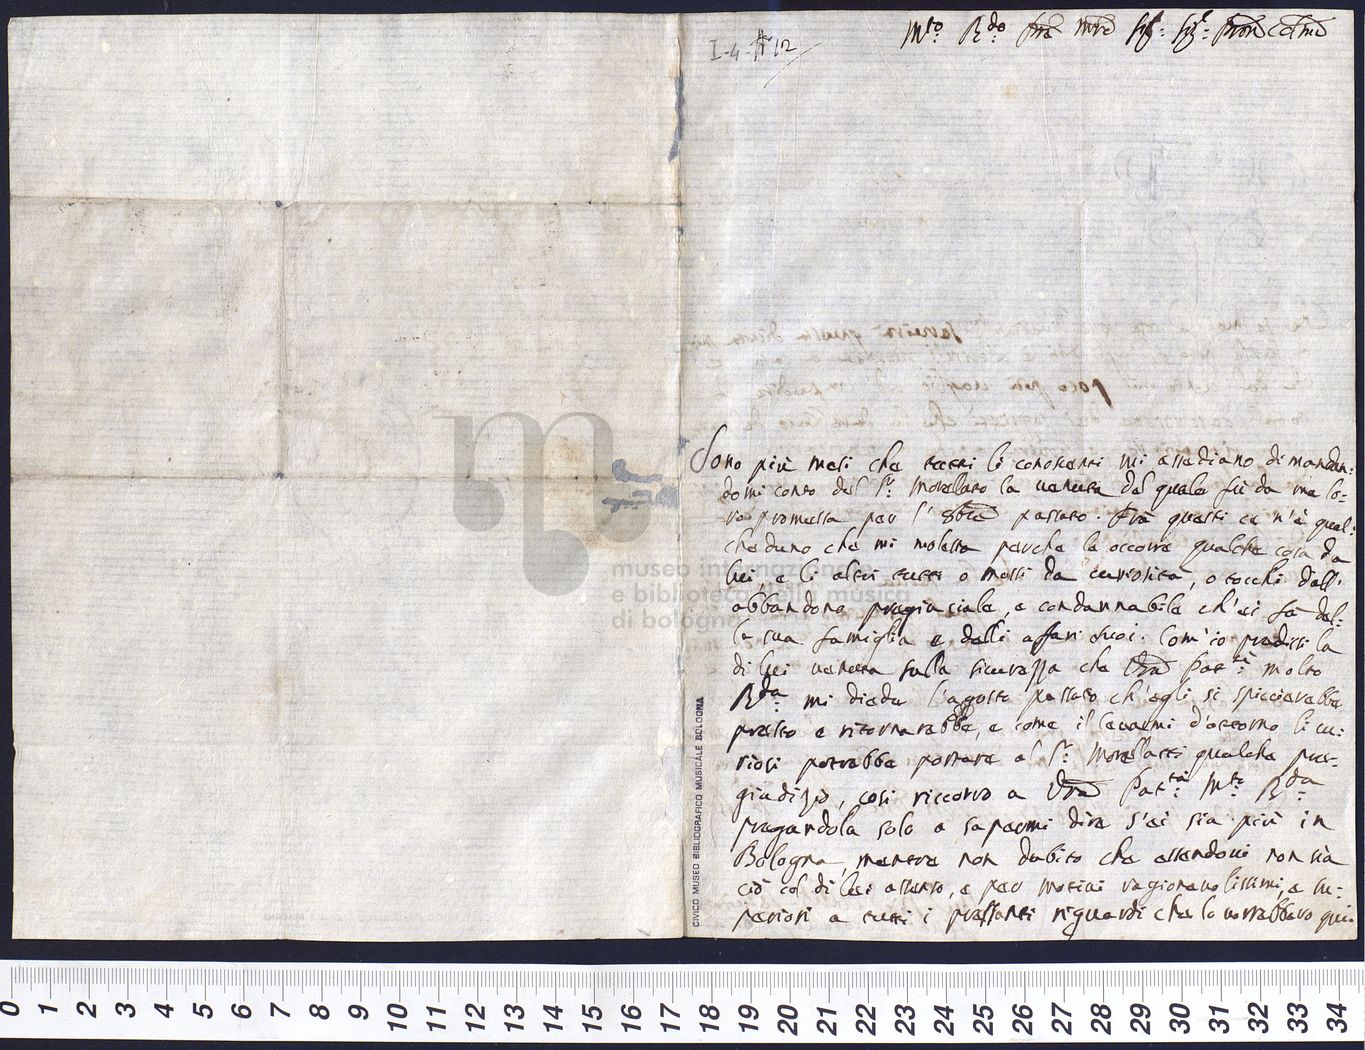 I-4-#12
Mto Rdo Pre Mre Sig: Sig: Pron Colmo
Sono più mesi che tutti li conoscenti mi assediano di mandan:
domi conto del Sr: Morellato la venuta del quale fù da me lo-
ro promessa per l'8bre passato. Frà questi ce n'è qual:
cheduno che mi molesta perche le occorre qualche cosa da
lui, e li altri tutti o mossi da curiosità, o tocchi dall'
abbandono pregiuciale, e condannabile ch'ei fà del-
la sua famiglia e delli affari suoi. Com'io predissi la
di lui venuta sulla sicurezza che Vra Patta: molto
Rda mi diede l'agosto passato ch'egli si spicciarebbe
presto e ritornarebbe, e come il levarmi d'attorno li cu-
riosi potrebbe portare al Sr: Morellatti qualche pre-
giudizio, così riccorro a Vra Patta: Mto Rda
pregandola solo a sapermi dire s'ei sia più in
Bologna, mentre non dubito che essendovi non sia
ciò col di lui assenso, e per motivi ragionevolissimi, e su-
periori a tutti i pressanti riguardi che lo vorrebbero qui.
museo internazionale
e biblioteca della musica
di bologna
CIVICO MUSEO BIBLIOGRAFICO MUSICALE BOLOGNA
0 1 2 3 4 5 6 7 8 9 10 11 12 13 14 15 16 17 18 19 20 21 22 23 24 25 26 27 28 29 30 31 32 33 34